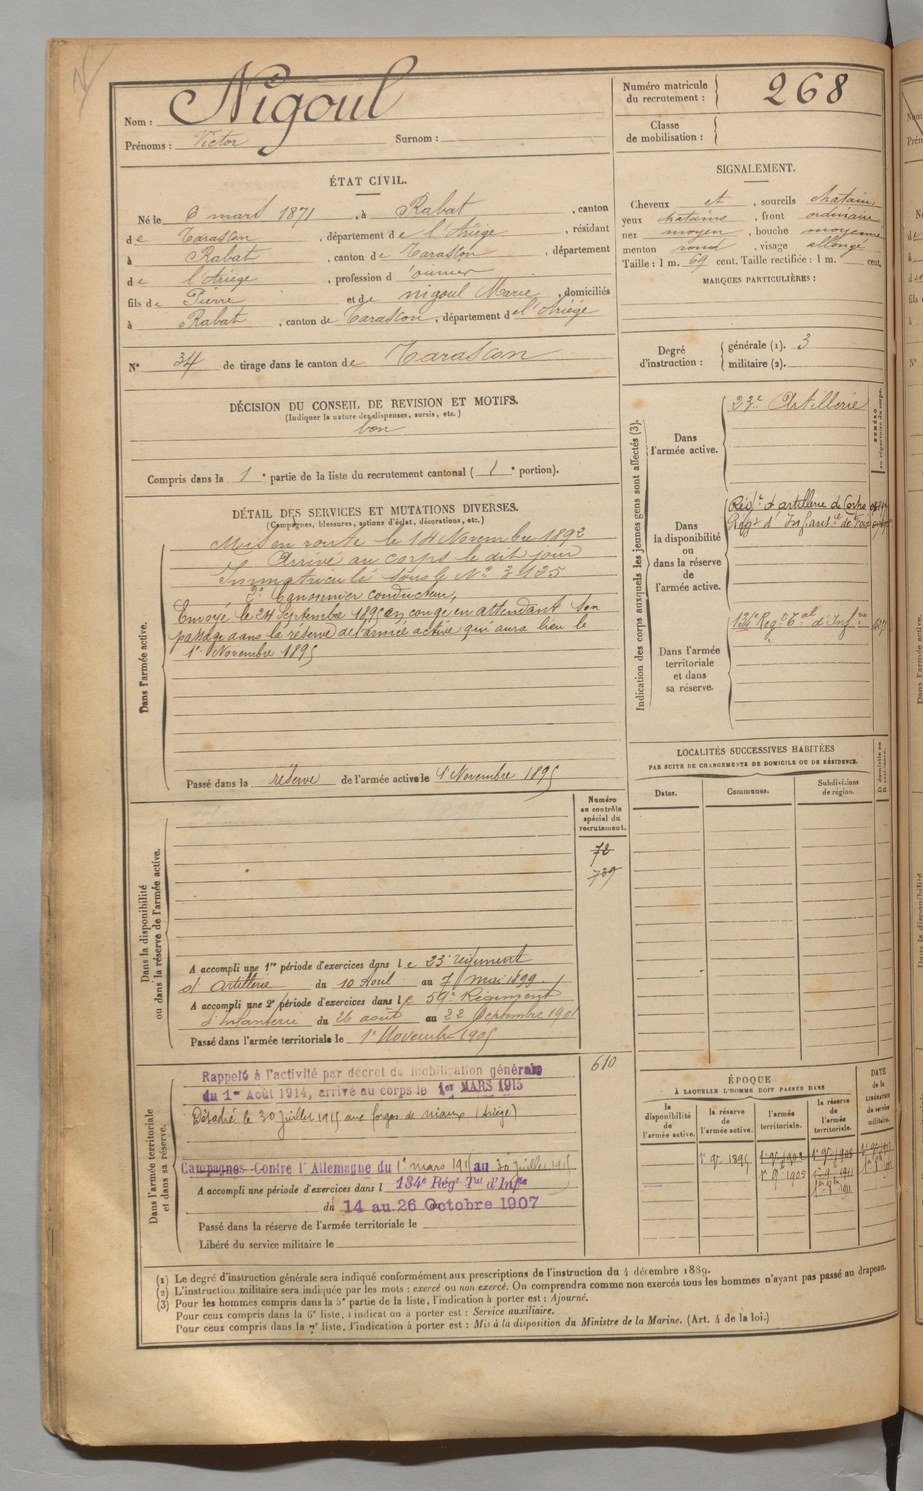 Nom : Nigoul
Prénoms : Victor Surnom :
Numéro matricule du recrutement : 268
Classe de mobilisation :
ÉTAT CIVIL.
Né le 6 mars 1871, à Rabat, canton
de Tarascon, département de l'Ariège, résidant
à Rabat, canton de Tarascon, département
de l'Ariège, profession d'ouvrier
fils de Pierre et de Nigoul Marie, domiciliés
à Rabat, canton de Tarascon, département de l'Ariége
N° 34 de tirage dans le canton de Tarascon
SIGNALEMENT.
Cheveux et, sourcils chatains
yeux chatains, front ordinaire
nez moyen, bouche moyenne
menton rond, visage allongé
Taille : 1 m. 69 cent. Taille rectifiée : 1 m. cent.
MARQUES PARTICULIÈRES :
Degré d'instruction : générale (1). 3
militaire (2).
DÉCISION DU CONSEIL DE REVISION ET MOTIFS.
(Indiquer la nature des dispenses, sursis, etc.)
bon
Compris dans la 1e partie de la liste du recrutement cantonal (1e portion).
DÉTAIL DES SERVICES ET MUTATIONS DIVERSES.
(Campagnes, blessures, actions d'éclat, décorations, etc.)
Dans l'armée active.
Mis en route le 14 Novembre 1892
Arrivé au corps le dit jour
Immatriculé sous le N° 3425
2e Canonnier conducteur,
Envoyé le 24 Septembre 1895 en congé en attendant son
passage dans la réserve de l'armée active qui aura lieu le
1er Novembre 1895
Passé dans la réserve de l'armée active le 1 Novembre 1895
Indication des corps auxquels les jeunes gens sont affectés (3).
Dans l'armée active.
23e Artillerie
Dans la disponibilité ou dans la réserve de l'armée active.
Régt d'artillerie de
Régt d'Infantie de
Dans l'armée territoriale et dans sa réserve.
134e Régt Tal d'Infrie
LOCALITÉS SUCCESSIVES HABITÉES
PAR SUITE DE CHANGEMENTS DE DOMICILE OU DE RÉSIDENCE.
Dates. Communes. Subdivisions de région.
Numéro au contrôle spécial du recrutement.
72
739
Dans la disponibilité ou dans la réserve de l'armée active.
A accompli une 1re période d'exercices dans le 23e régiment
d'Artillerie du 10 Avril au 7 mai 1899
A accompli une 2e période d'exercices dans le 59e Régiment
d'Infanterie du 26 août au 22 Septembre 1901
Passé dans l'armée territoriale le 1er Novembre 1905
610
Dans l'armée territoriale et dans sa réserve.
Rappelé à l'activité par décret de mobilisation générale
du 1er Août 1914, arrivé au corps le 1er MARS 1915
Détaché le 30 juillet 1915 aux forges de niaux (Ariège)
Campagnes Contre l'Allemagne du 1er mars 1915 au 30 juillet 1915
A accompli une période d'exercices dans l 134e Régt Tal d'Infie
du 14 au 26 Octobre 1907
Passé dans la réserve de l'armée territoriale le
Libéré du service militaire le
ÉPOQUE
À LAQUELLE L'HOMME DOIT PASSER DANS
la disponibilité de l'armée active. la réserve de l'armée active. l'armée territoriale. la réserve de l'armée territoriale.
DATE de la LIBÉRATION du service militaire.
1er 9bre 1895 1er 9bre 1902 1er 9bre 1908
1er 9bre 1905 1er 9bre 1911
(1) Le degré d'instruction générale sera indiqué conformément aux prescriptions de l'instruction du 4 décembre 1889.
(2) L'instruction militaire sera indiquée par les mots : exercé ou non exercé. On comprendra comme non exercés tous les hommes n'ayant pas passé au drapeau.
(3) Pour les hommes compris dans la 5e partie de la liste, l'indication à porter est : Ajourné.
Pour ceux compris dans la 6e liste, l'indication à porter est : Service auxiliaire.
Pour ceux compris dans la 7e liste, l'indication à porter est : Mis à la disposition du Ministre de la Marine. (Art. 4 de la loi.)